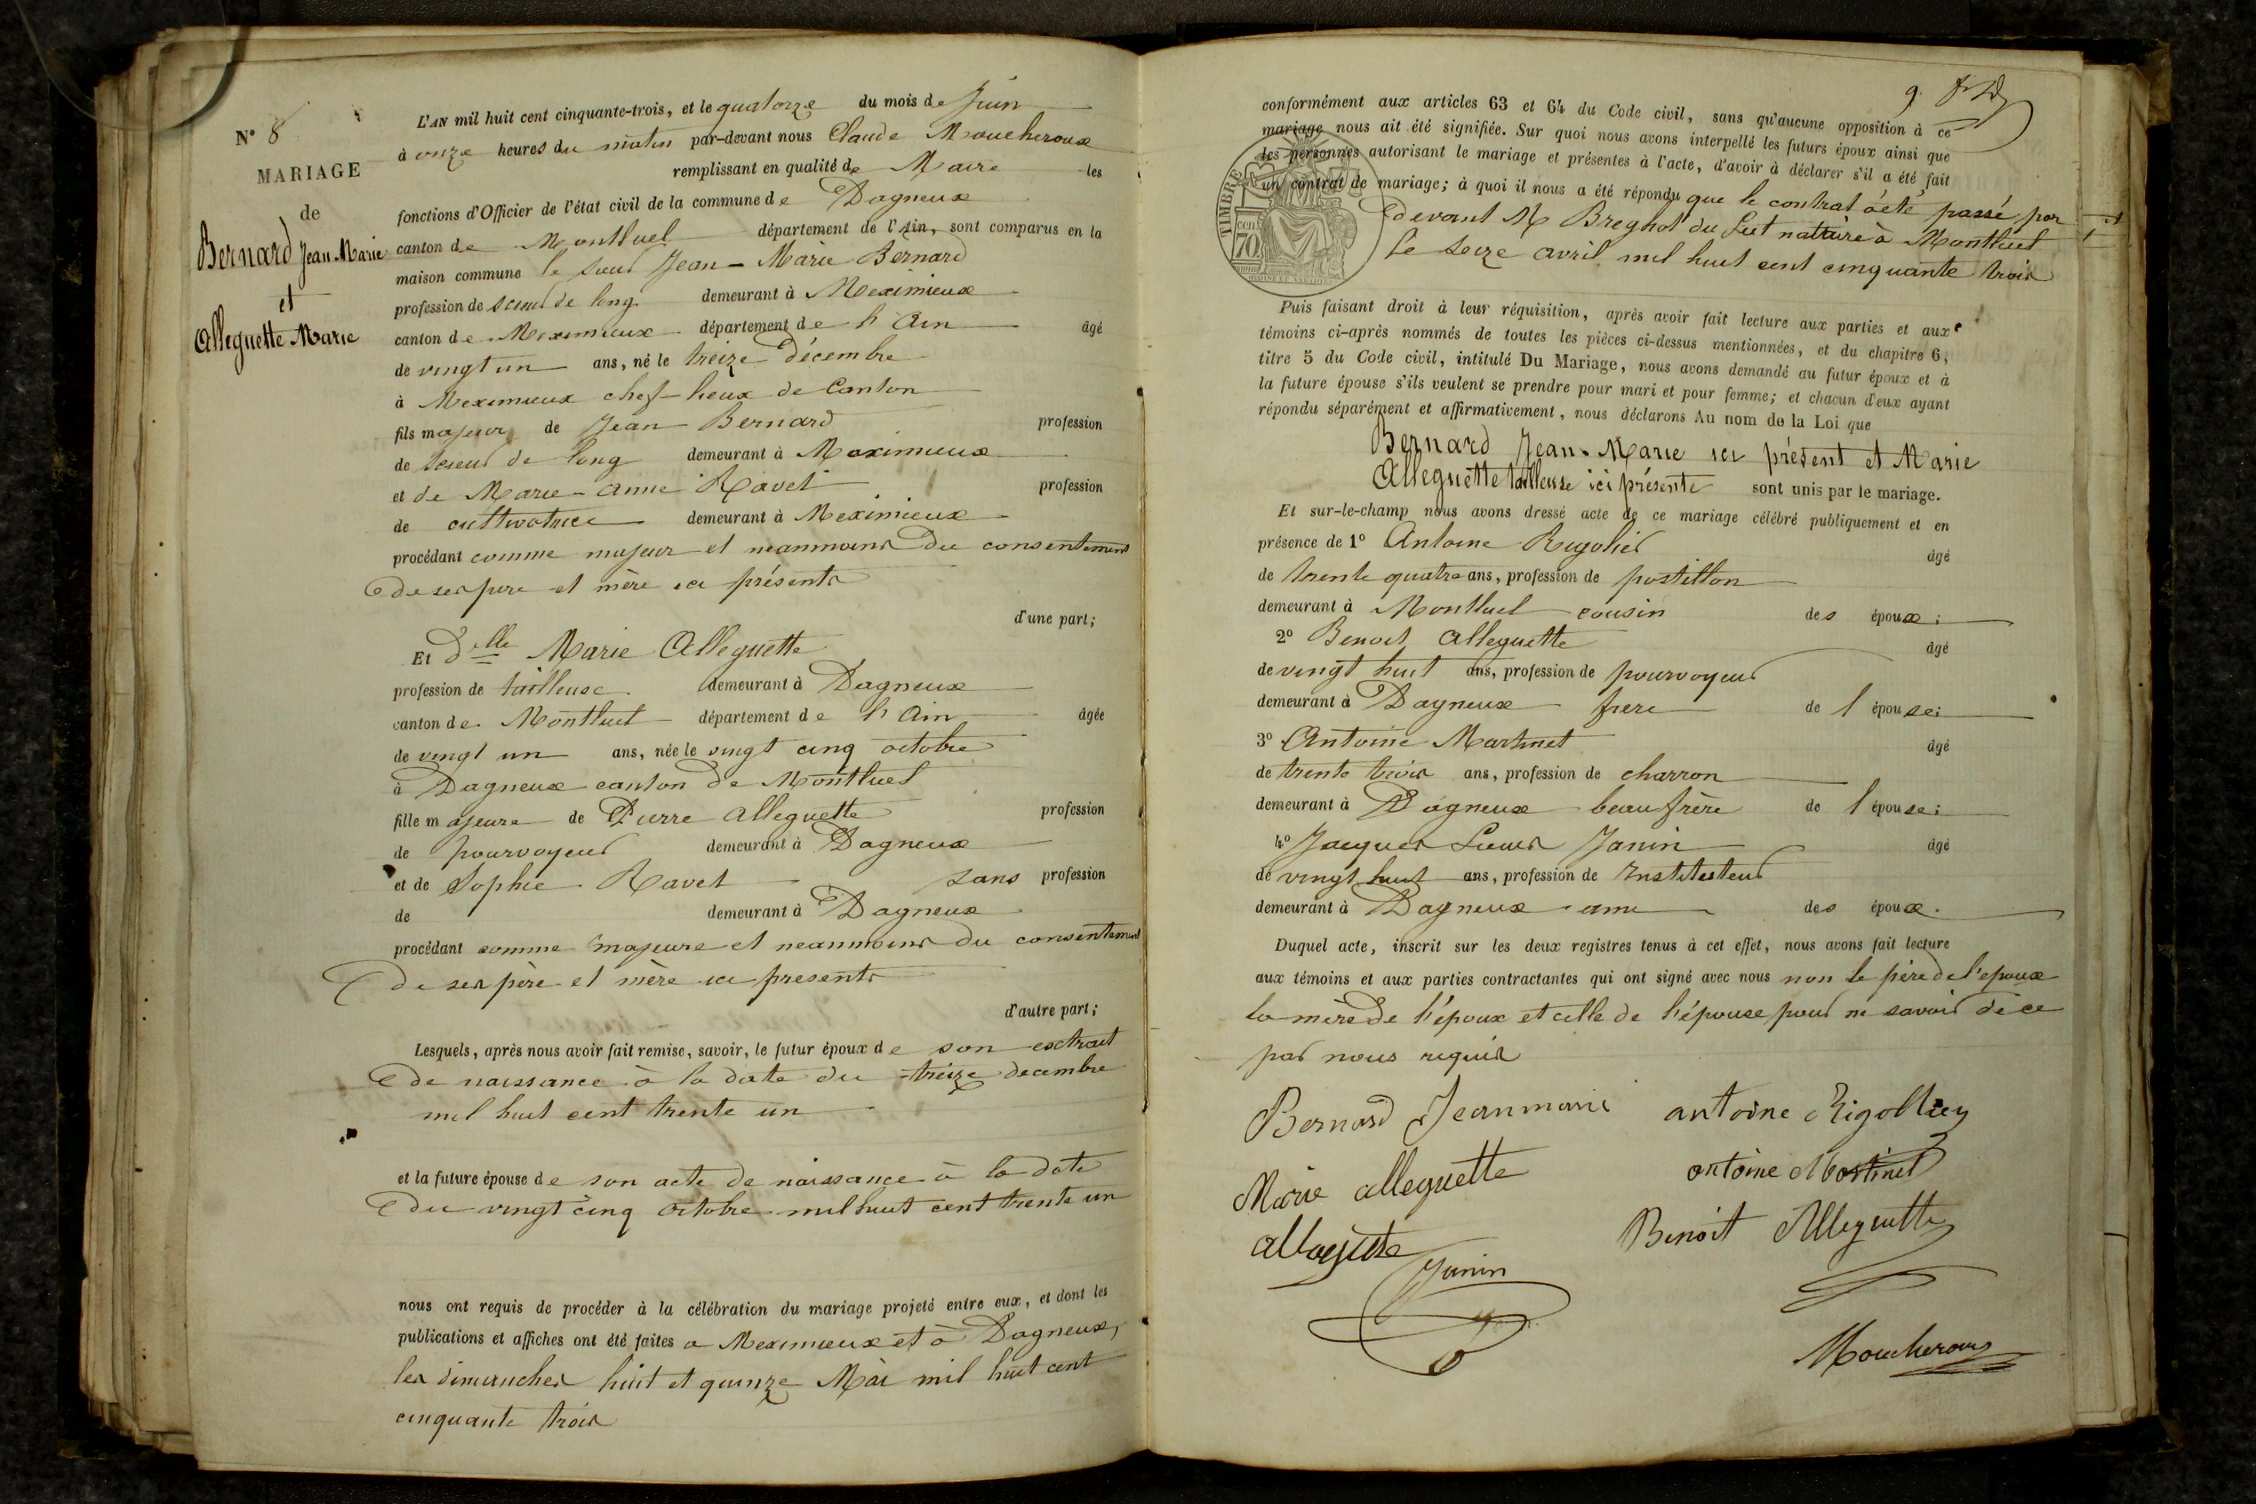 N° 8
MARIAGE
de
Bernard Jean Marie
et
Alleguette Marie
L'AN mil huit cent cinquante-trois, et le quatorze du mois de Juin
à onze heures du matin par-devant nous Claude Moucheroux
remplissant en qualité de Maire les
fonctions d'Officier de l'état civil de la commune de Dagneux
canton de Montluel département de l'Ain, sont comparus en la
maison commune le sieur Jean-Marie Bernard
profession de scieur de long demeurant à Meximieux
canton de Meximieux département de l'Ain âgé
de vingt un ans, né le treize Décembre
à Meximieux chef-lieux de Canton
fils majeur de Jean Bernard profession
de scieur de long demeurant à Meximieux
et de Marie-Anne Ravet profession
de cultivatrice demeurant à Meximieux
procédant comme majeur et neanmoins du consentement
de ses pere et mère ici présents
d'une part;
Et Dlle Marie Alleguette
profession de tailleuse demeurant à Dagneux
canton de Montluel département de l'Ain âgée
de vingt un ans, née le vingt cinq octobre
à Dagneux canton de Montluel
fille majeure de Pierre Alleguette profession
de pourvoyeur demeurant à Dagneux
et de Sophie Ravet sans profession
de demeurant à Dagneux
procédant comme majeure et neanmoins du consentement
de ses père et mère ici presents
d'autre part;
Lesquels, après nous avoir fait remise, savoir, le futur époux de son exctrait
de naissance à la date du treize decembre
mil huit cent trente un
et la future épouse de son acte de naissance à la date
du vingt cinq octobre mil huit cent trente un
nous ont requis de procéder à la célébration du mariage projeté entre eux, et dont les
publications et affiches ont été faites a Meximieux et à Dagneux,
les dimanches huit et quinze Mai mil huit cent
cinquante trois
9
conformément aux articles 63 et 64 du Code civil, sans qu'aucune opposition à ce
mariage nous ait été signifiée. Sur quoi nous avons interpellé les futurs époux ainsi que
les personnes autorisant le mariage et présentes à l'acte, d'avoir à déclarer s'il a été fait
un contrat de mariage; à quoi il nous a été répondu que le contrat a été passé par
devant M Breghot du Lut nottaire à Montluel
le seize avril mil huit cent cinquante trois
TIMBRE
70
Puis faisant droit à leur réquisition, après avoir fait lecture aux parties et aux
témoins ci-après nommés de toutes les pièces ci-dessus mentionnées, et du chapitre 6,
titre 5 du Code civil, intitulé Du Mariage, nous avons demandé au futur époux et à
la future épouse s'ils veulent se prendre pour mari et pour femme; et chacun d'eux ayant
répondu séparément et affirmativement, nous déclarons Au nom de la Loi que
Bernard Jean-Marie ici présent et Marie
Alleguette tailleuse ici présente sont unis par le mariage.
Et sur-le-champ nous avons dressé acte de ce mariage célébré publiquement et en
présence de 1° Antoine Rigolier âgé
de trente quatre ans, profession de postillon
demeurant à Montluel cousin des époux;
2° Benoit Alleguette âgé
de vingt huit ans, profession de pourvoyeur
demeurant à Dagneux frere de l'épouse;
3° Antoine Martinet âgé
de trente trois ans, profession de charron
demeurant à Dagneux beau frère de l'épouse;
4° Jacques Janin âgé
de vingt huit ans, profession de Instituteur
demeurant à Dagneux ami des époux.
Duquel acte, inscrit sur les deux registres tenus à cet effet, nous avons fait lecture
aux témoins et aux parties contractantes qui ont signé avec nous non le père de l'epoux
la mère de l'époux et celle de l'épouse pour ne savoir de ce
par nous requis
Bernard Jeanmarie
antoine Rigollier
Marie alleguette
antoine Martinet
allegiete
Benoit Alleguette
Janin
Moucheroux